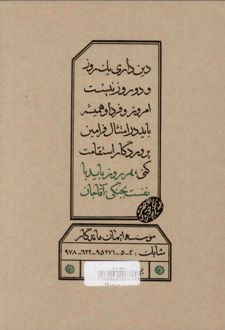 دین‌داری یک روز
و دو روز نیست
امروز و فردا و همیشه
باید در امتثال فرامین
پروردگار استقامت
کنی، هر روز باید با
نفست بجنگی؛ آقاجان
موسسه ایمان ماندگار
شابک: ۲-۵-۹۵۲۷۱-۶۲۲-۹۷۸